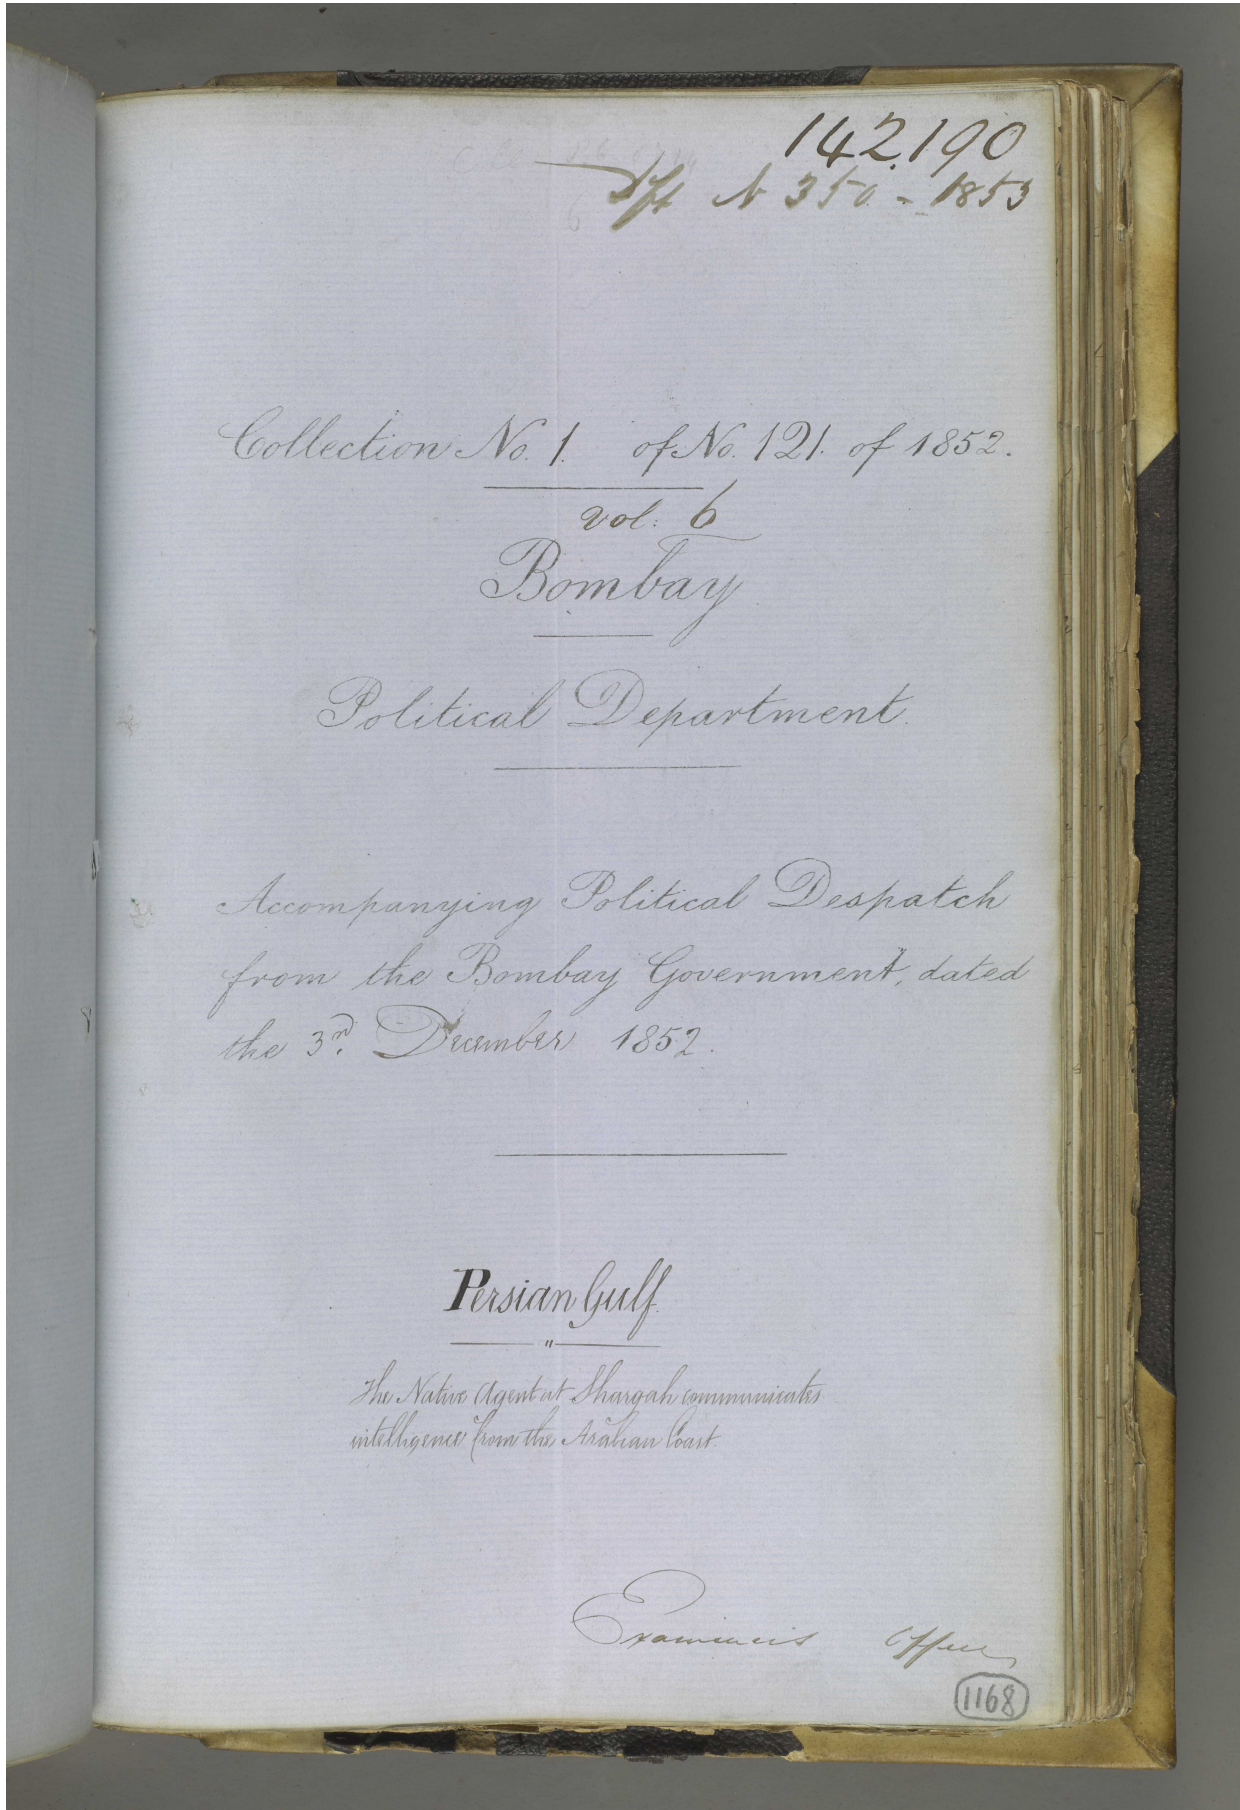 142,190
Dft N 350 - 1853
Collection No. 1. of No. 121. of 1852.
vol: 6
Bombay
Political Department.
Accompanying Political Despatch
from the Bombay Government, dated
the 3rd. December 1852.
Persian Gulf.
The Native Agent at Shargah communicates
intelligence from the Arabian Coast.
Examiner's Office
1168